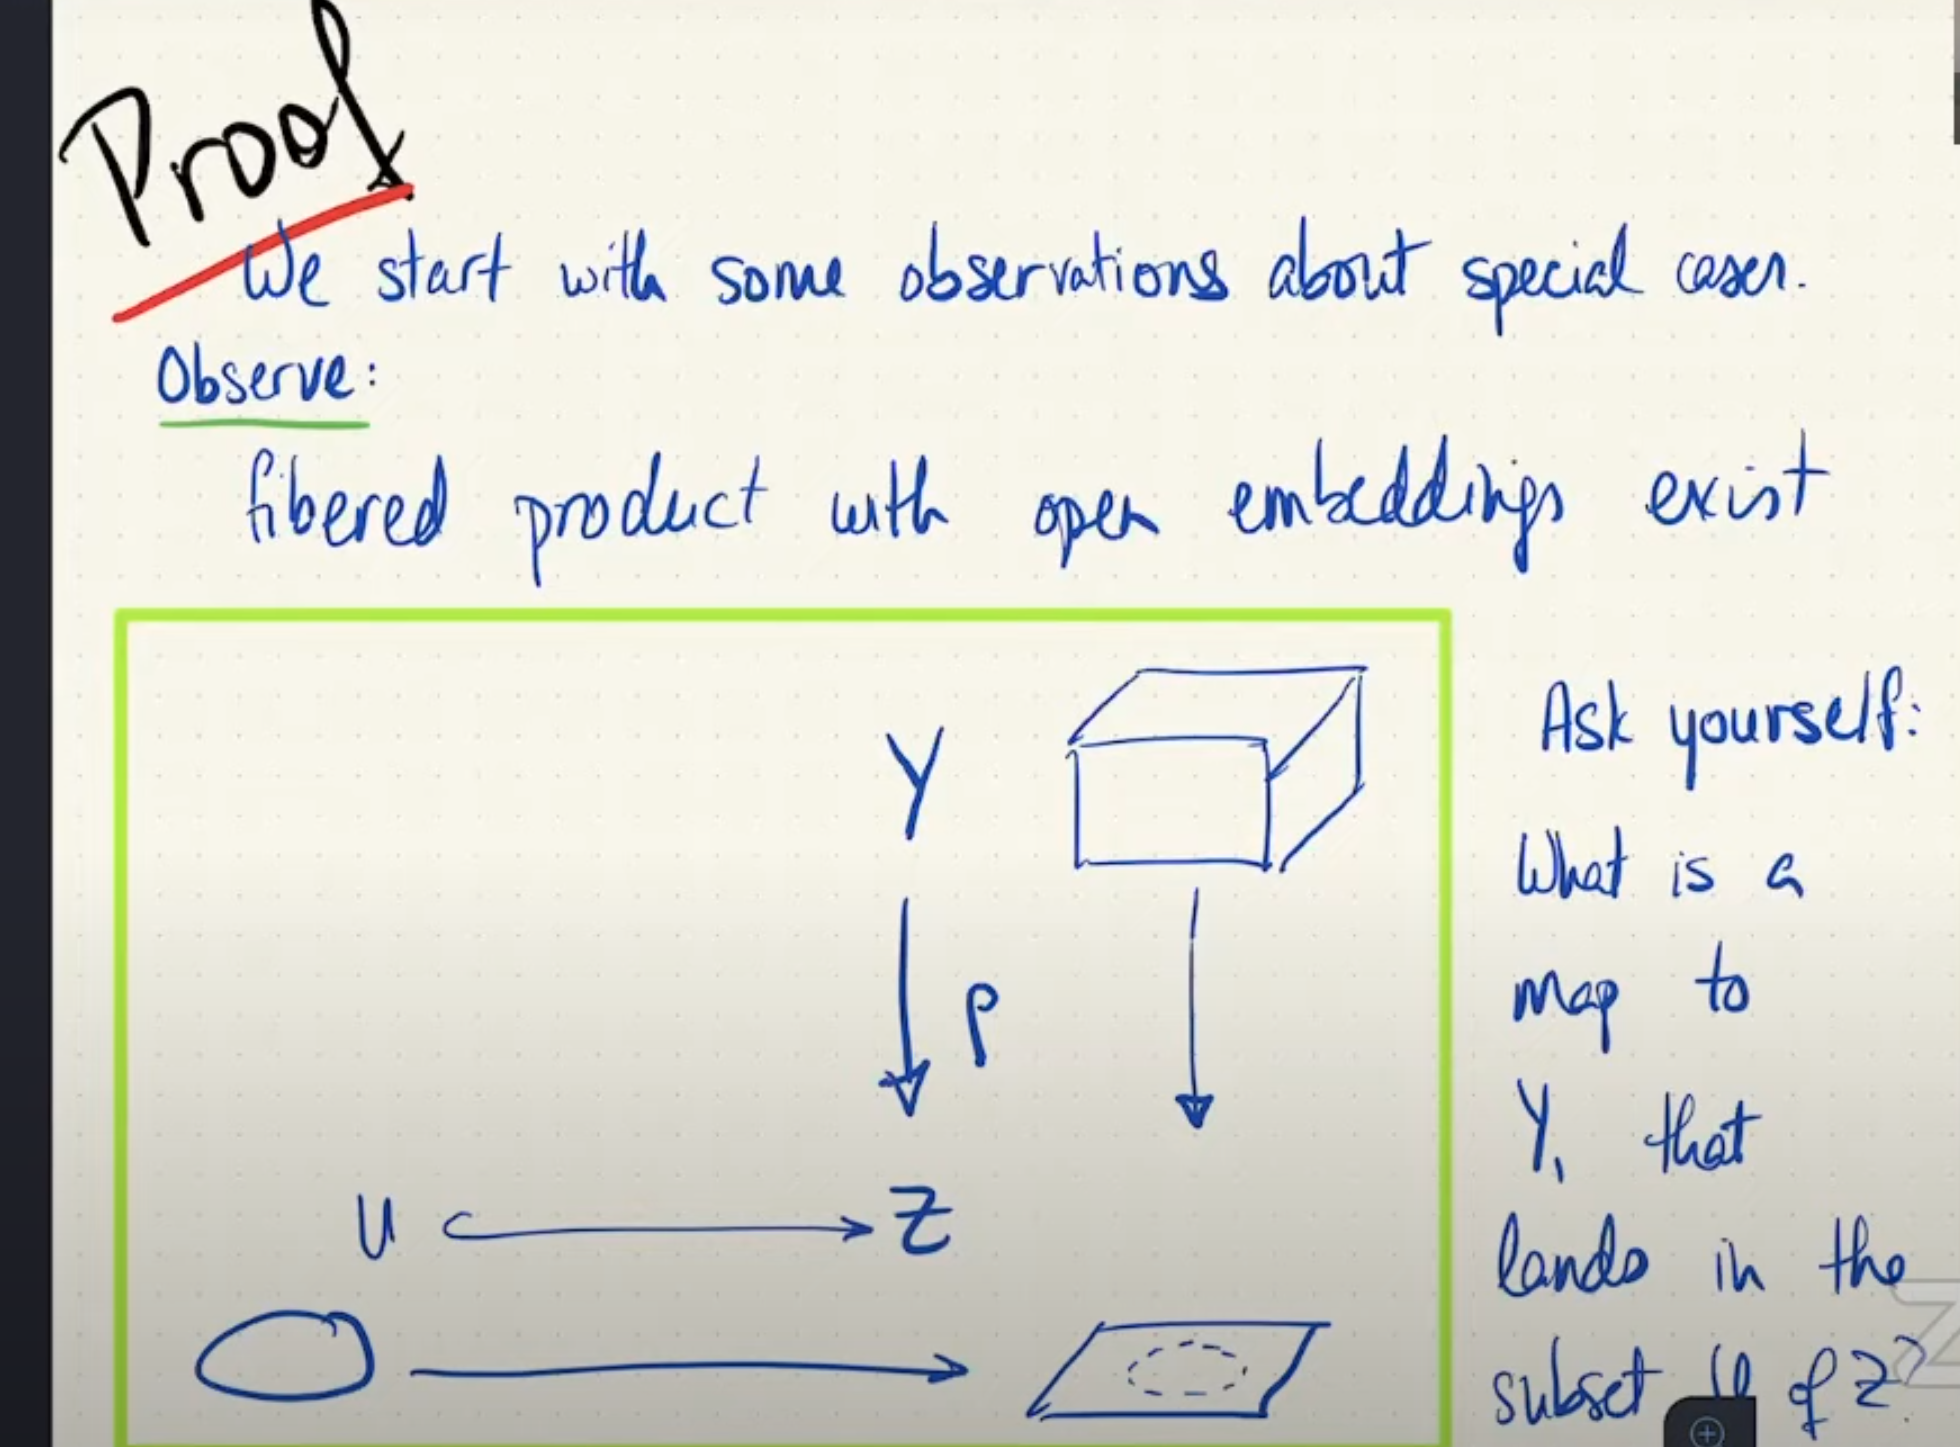 Proof
We start with some observations about special cases.
Observe:
fibered product with open embeddings exist
Y
Ask yourself:
What is a
map to
p
Y, that
U
Z
lands in the
subset U of Z?